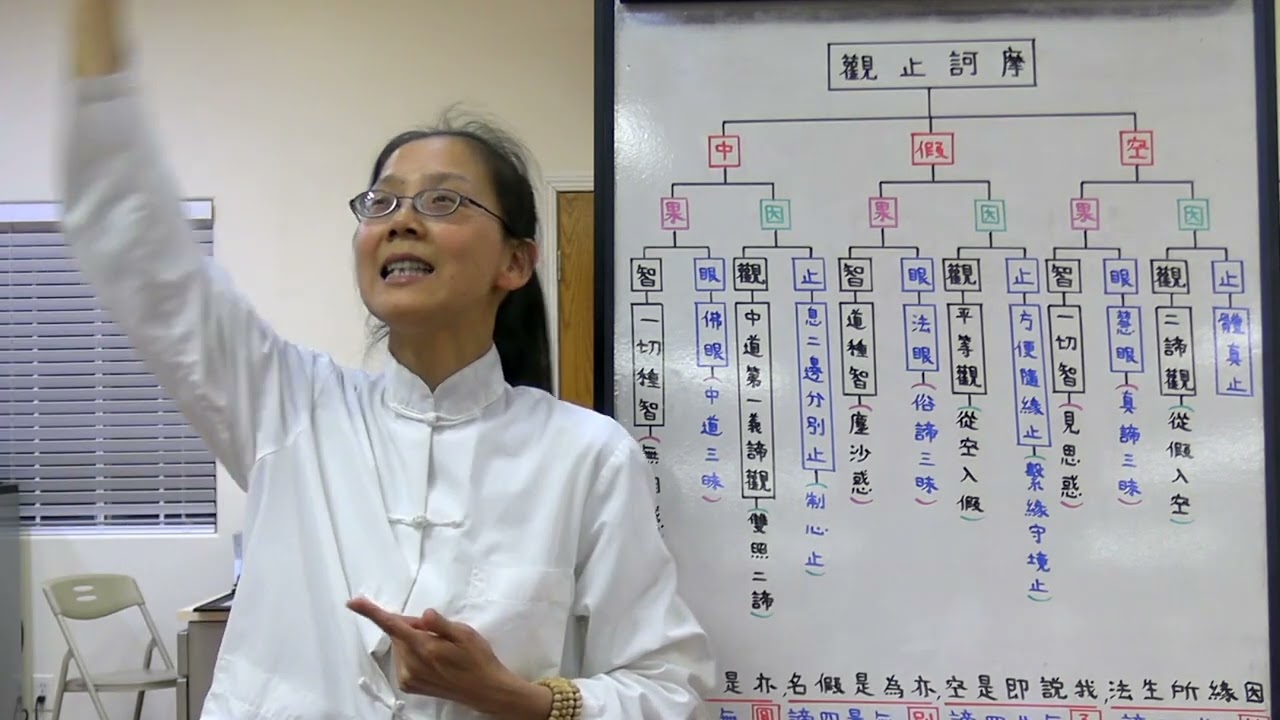 摩訶止觀
空
假
中
因
果
因
果
因
果
止
體真止
觀
二諦觀(從假入空)
眼
慧眼(真諦三昧)
智
一切智(見思惑)
止
方便隨緣止(繫緣守境止)
觀
平等觀(從空入假)
眼
法眼(俗諦三昧)
智
道種智(塵沙惑)
止
息二邊分別止(制心止)
觀
中道第一義諦觀(雙照二諦)
眼
佛眼(中道三昧)
智
一切種智(無
因緣所生法,我說即是空,亦為是假名,亦是
別
圓